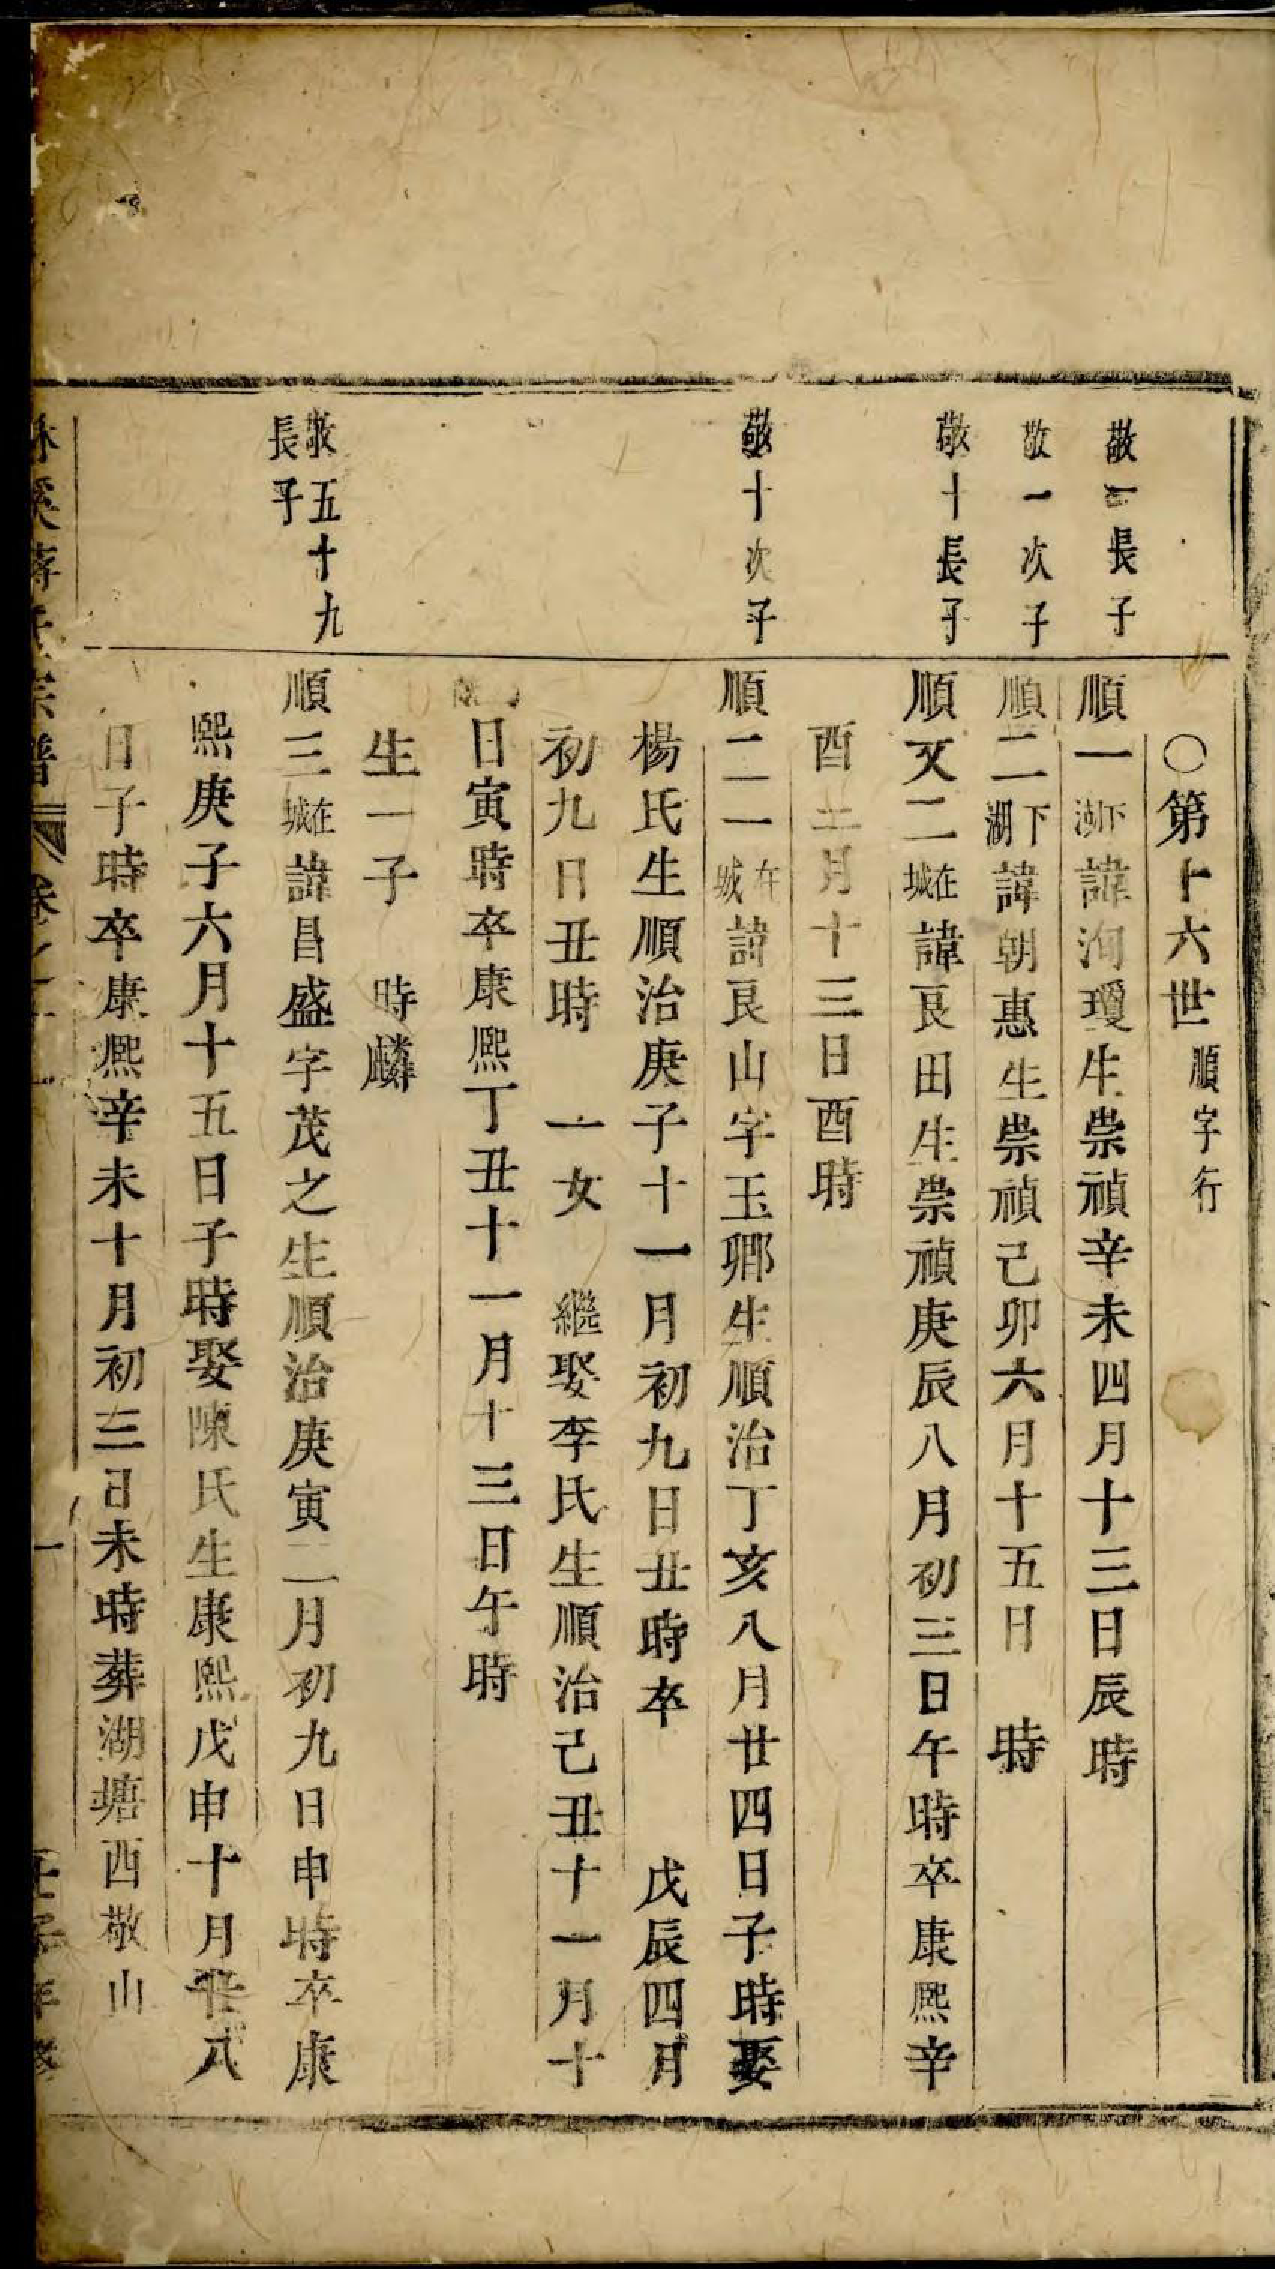 ○第十六世順字行
敬一長子
順一下湖諱洵瓊生崇禎辛未四月十三日辰時
敬一次子
順二下湖諱朝惠生崇禎己卯六月十五日 時
敬十長子
順又二在城諱良田生崇禎庚辰八月初三日午時卒康熙辛
酉 月十三日酉時
敬十次子
順二一在城諱良山字玉卿生順治丁亥八月廿四日子時娶
楊氏生順治庚子十一月初九日丑時卒 戊辰四月
初九日丑時 一女 繼娶李氏生順治己丑十一月十
日寅時卒康熙丁丑十一月十三日午時
生一子 時麟
敬五十九
長子
順三在城諱昌盛字茂之生順治庚寅二月初九日申時卒康
熙庚子六月十五日子時娶陳氏生康熙戊申十月廿八
日子時卒康熙辛未十月初三日未時葬湖塘西敬山
宗譜 卷之 一